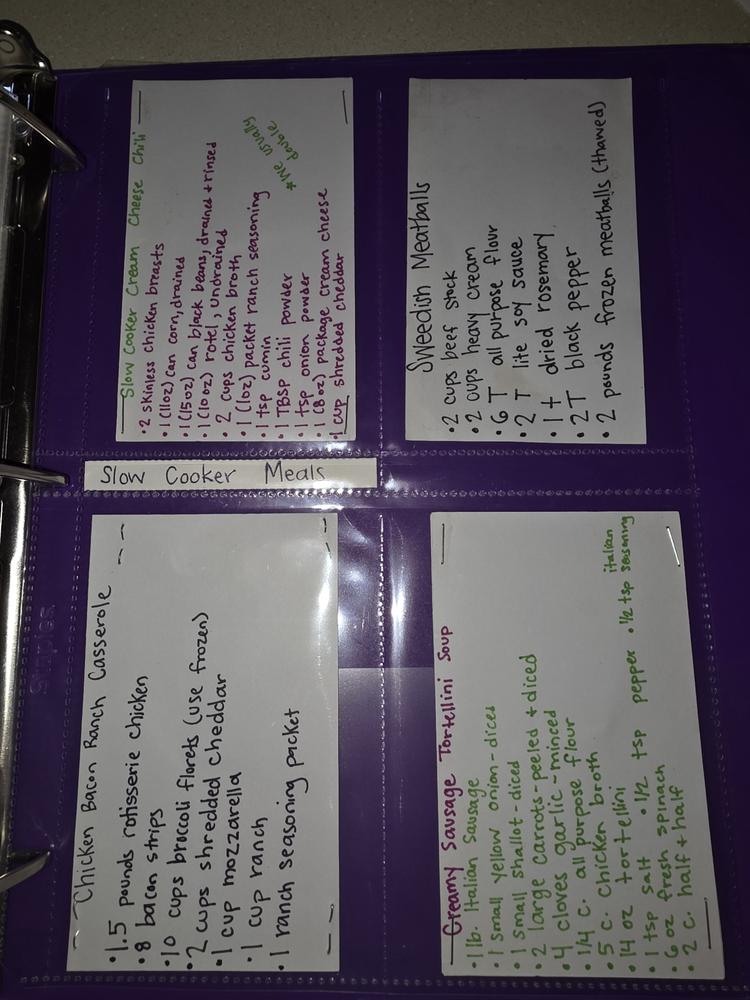 Slow Cooker Meals
Chicken Bacon Ranch Casserole
• 1.5 pounds rotisserie chicken
• 8 bacon strips
• 10 cups broccoli florets (use frozen)
• 2 cups shredded cheddar
• 1 cup mozzarella
• 1 cup ranch
• 1 ranch seasoning packet
Slow Cooker Cream Cheese Chili
• 2 skinless chicken breasts
• 1 (11oz) can corn, drained
• 1 (15oz) can black beans, drained + rinsed
• 1 (10 oz) rotel, undrained
• 2 cups chicken broth
• 1 (1oz) packet ranch seasoning
• 1 tsp cumin
• 1 TBSP chili powder
• 1 tsp onion powder
• 1 (8oz) package cream cheese
• 1 cup shredded cheddar
*We usually
double
Creamy Sausage Tortellini Soup
• 1 lb. Italian Sausage
• 1 small yellow onion - diced
• 1 small shallot - diced
• 2 large carrots - peeled + diced
• 4 cloves garlic - minced
• 1/4 c. all purpose flour
• 5 c. chicken broth
• 14 oz tortellini
• 1 tsp salt • 1/2 tsp pepper • 1/2 tsp italian seasoning
• 6 oz fresh spinach
• 2 c. half + half
Sweedish Meatballs
• 2 cups beef stock
• 2 cups heavy cream
• 6 T all purpose flour
• 2 T lite soy sauce
• 1 t dried rosemary
• 2 T black pepper
• 2 pounds frozen meatballs (thawed)
staples